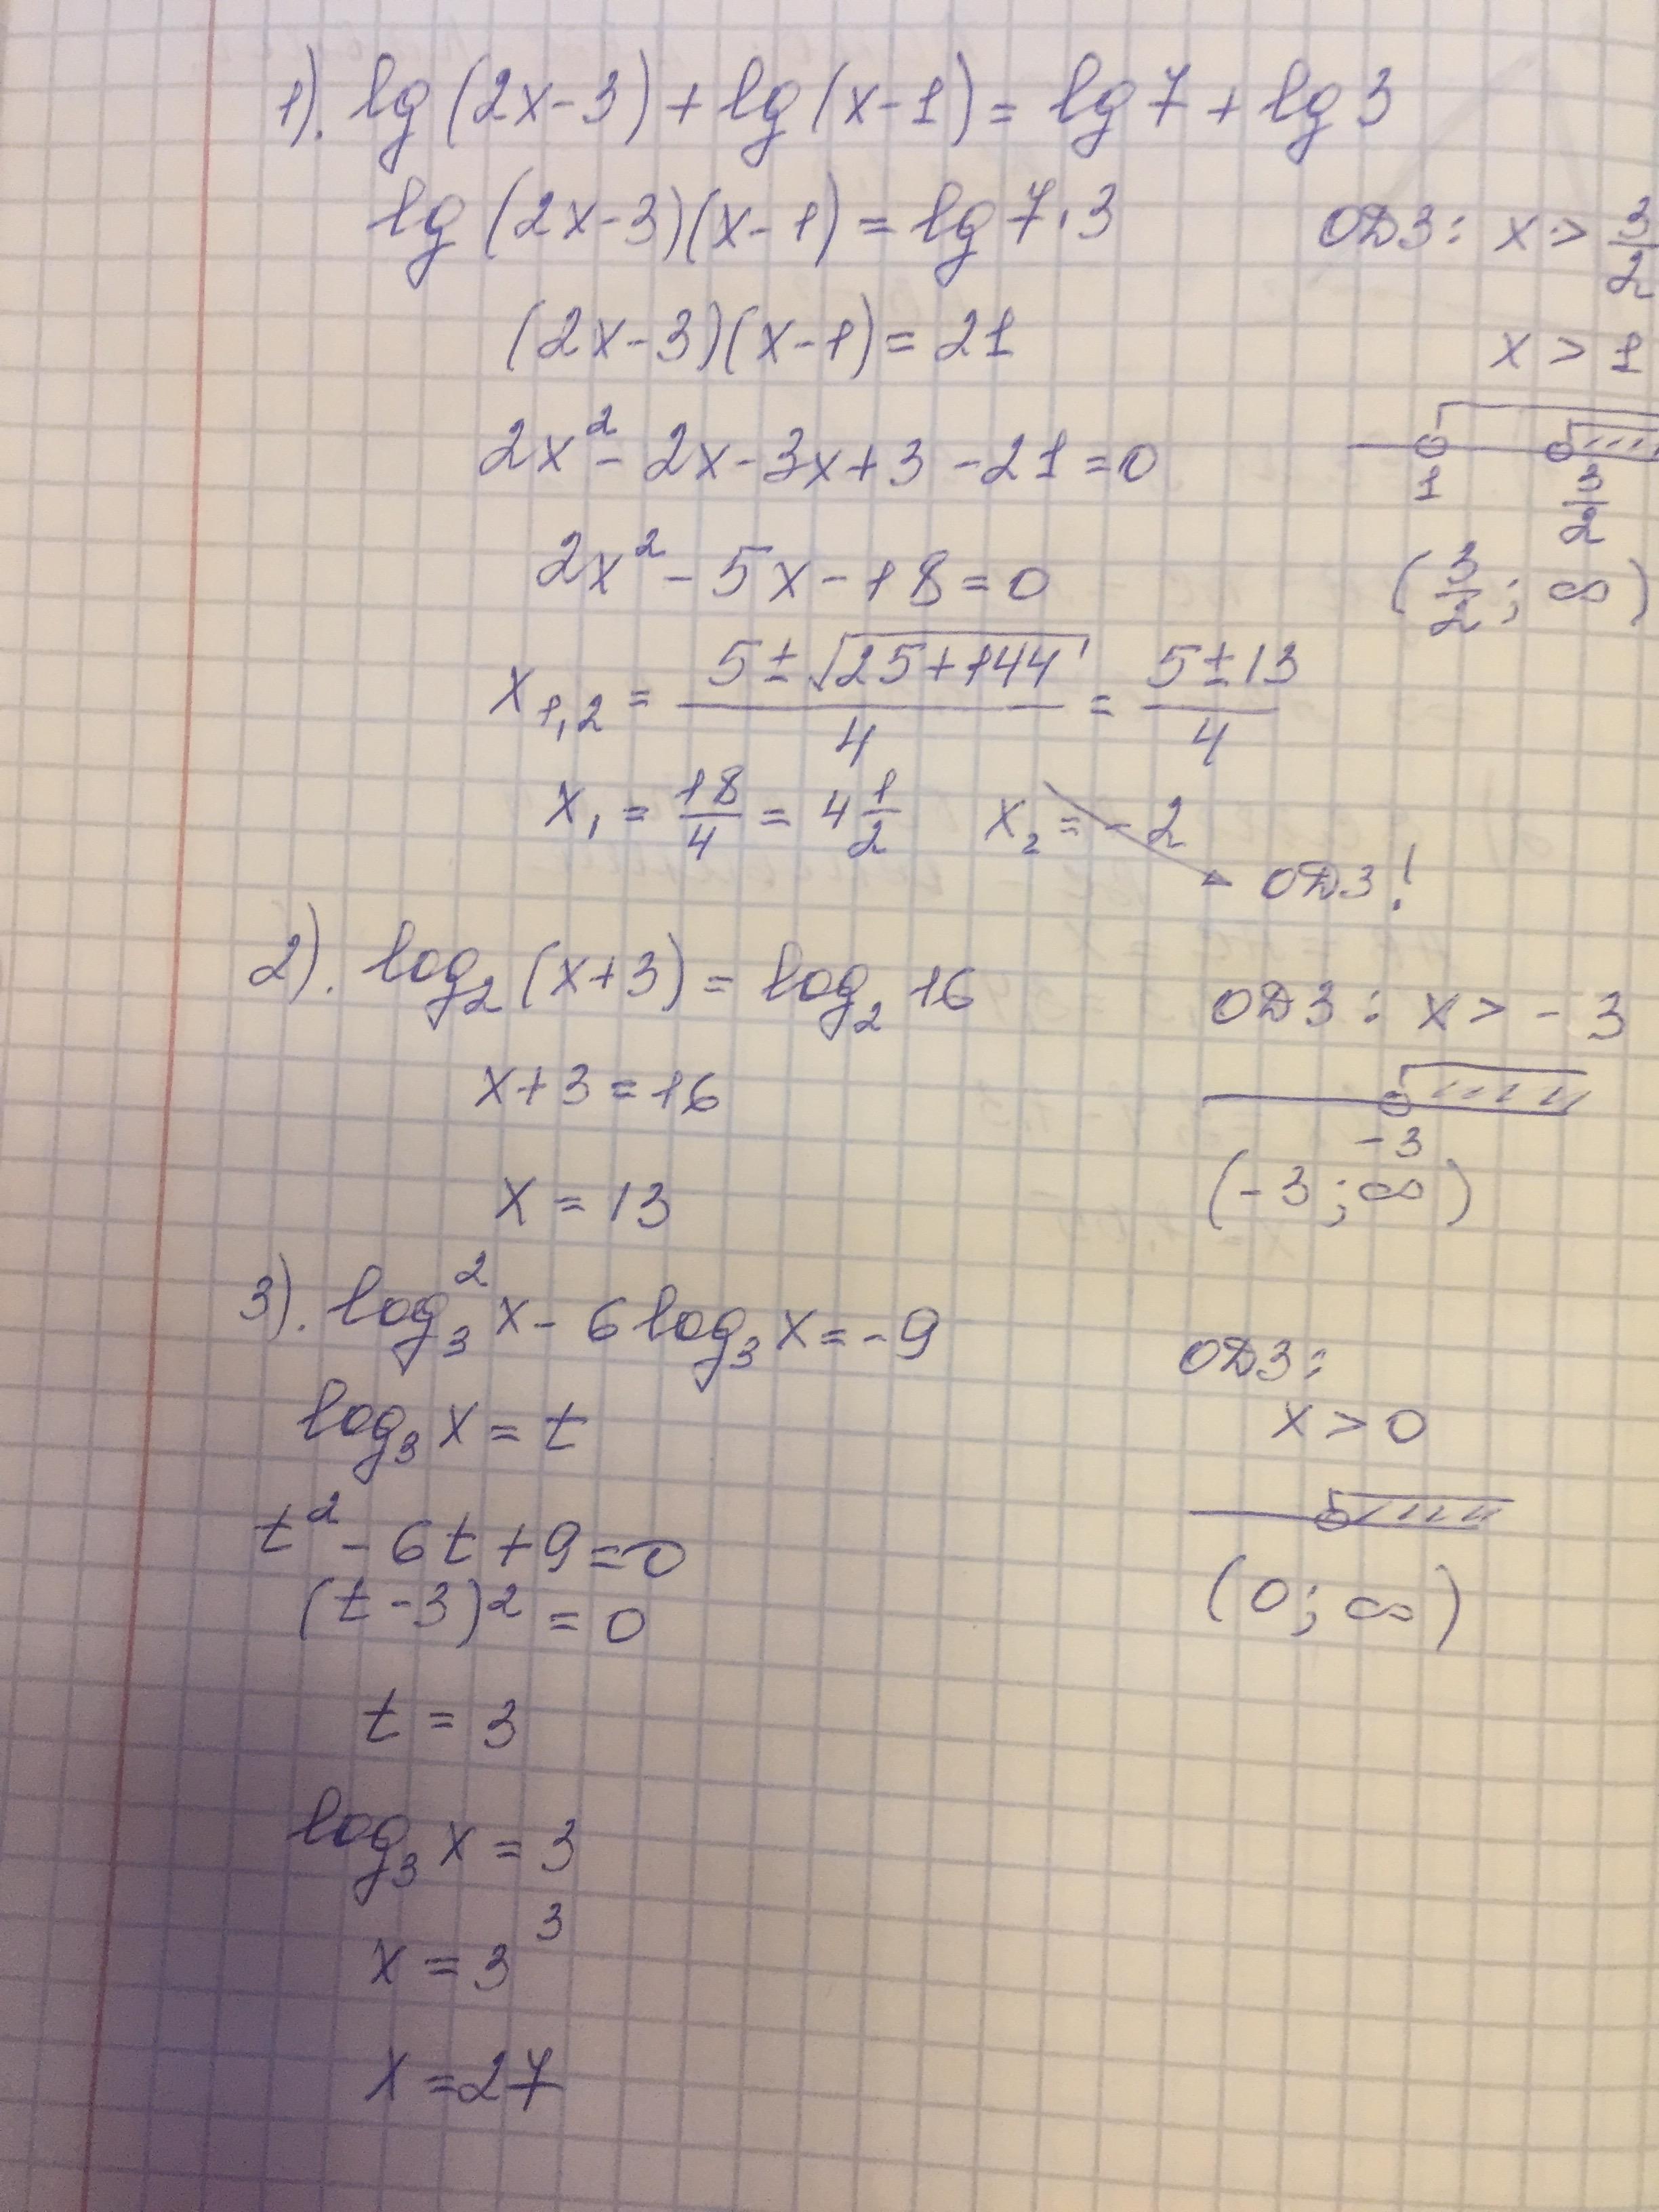 1). lg(2x-3)+lg(x-1)=lg7+lg3
lg(2x-3)(x-1)=lg7·3
ОДЗ: x > 3/2
(2x-3)(x-1)=21
x > 1
2x²-2x-3x+3-21=0
1 3/2
2x²-5x-18=0
(3/2; ∞)
x₁,₂ = (5±√(25+144))/4 = (5±13)/4
x₁ = 18/4 = 4 1/2 x₂ = -2
ОДЗ!
2). log₂(x+3)=log₂16
ОДЗ: x > -3
x+3=16
-3
x = 13
(-3; ∞)
3). log₃²x - 6log₃x = -9
ОДЗ:
log₃x = t
x > 0
t²-6t+9=0
(t-3)²=0
(0; ∞)
t = 3
log₃x = 3
x = 3³
x = 27